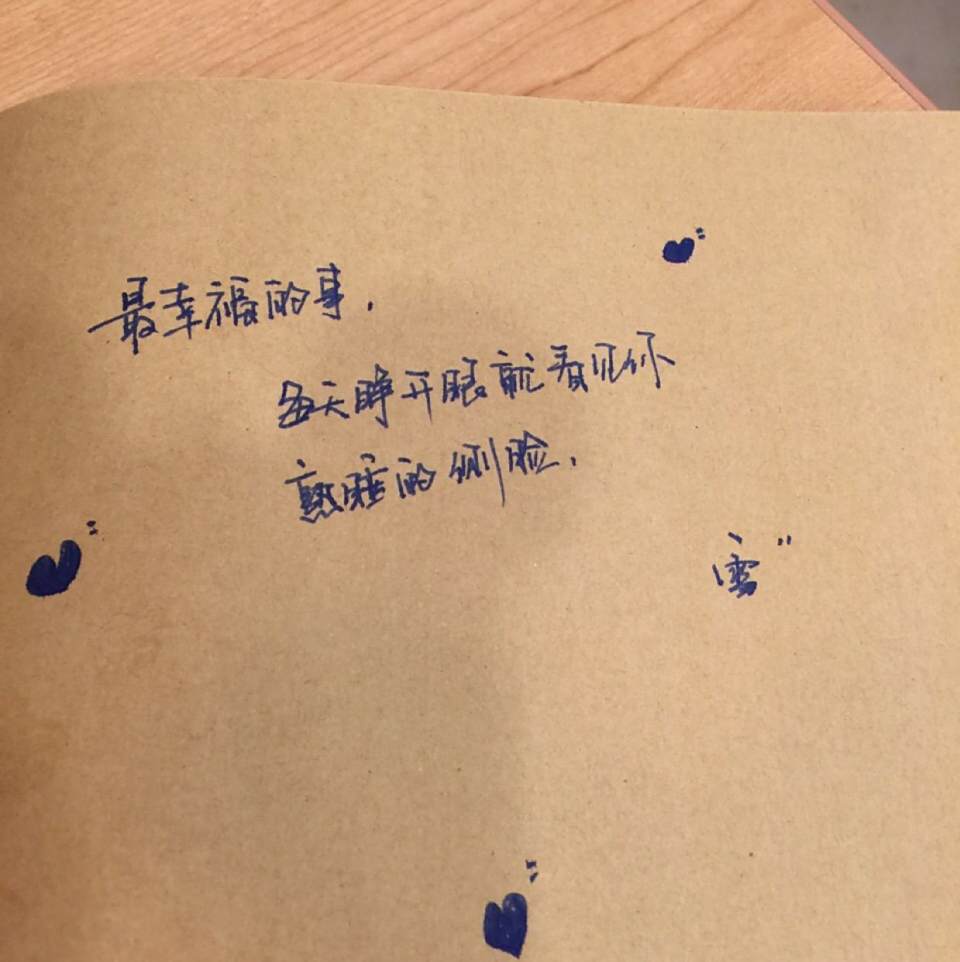 最幸福的事,
每天睁开眼就看见你
熟睡的侧脸.